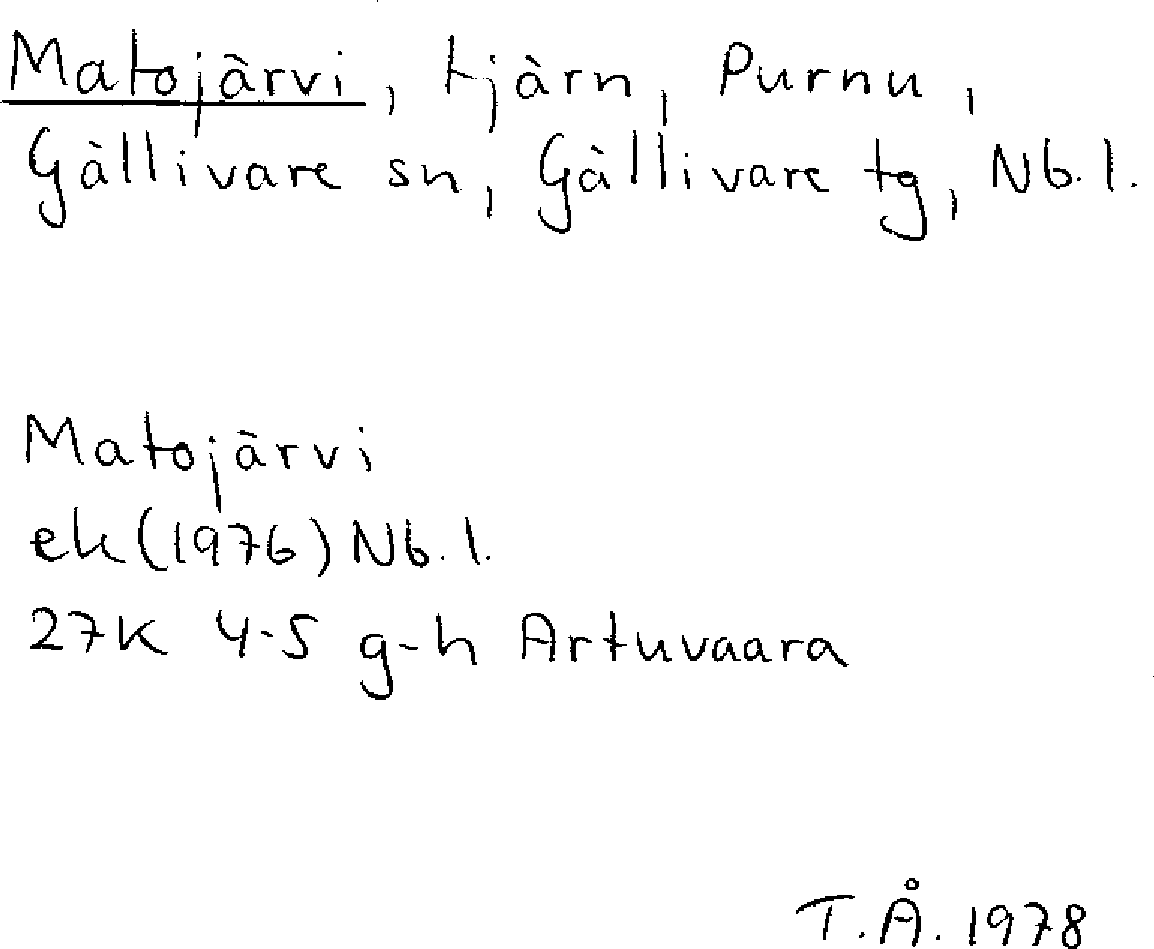 Matojärvi, tjärn, Purnu,
Gällivare sn, Gällivare tg, Nb.l.
Matojärvi
ek (1976) Nb.l.
27K 4-5 g-h Artuvaara
T.Å. 1978